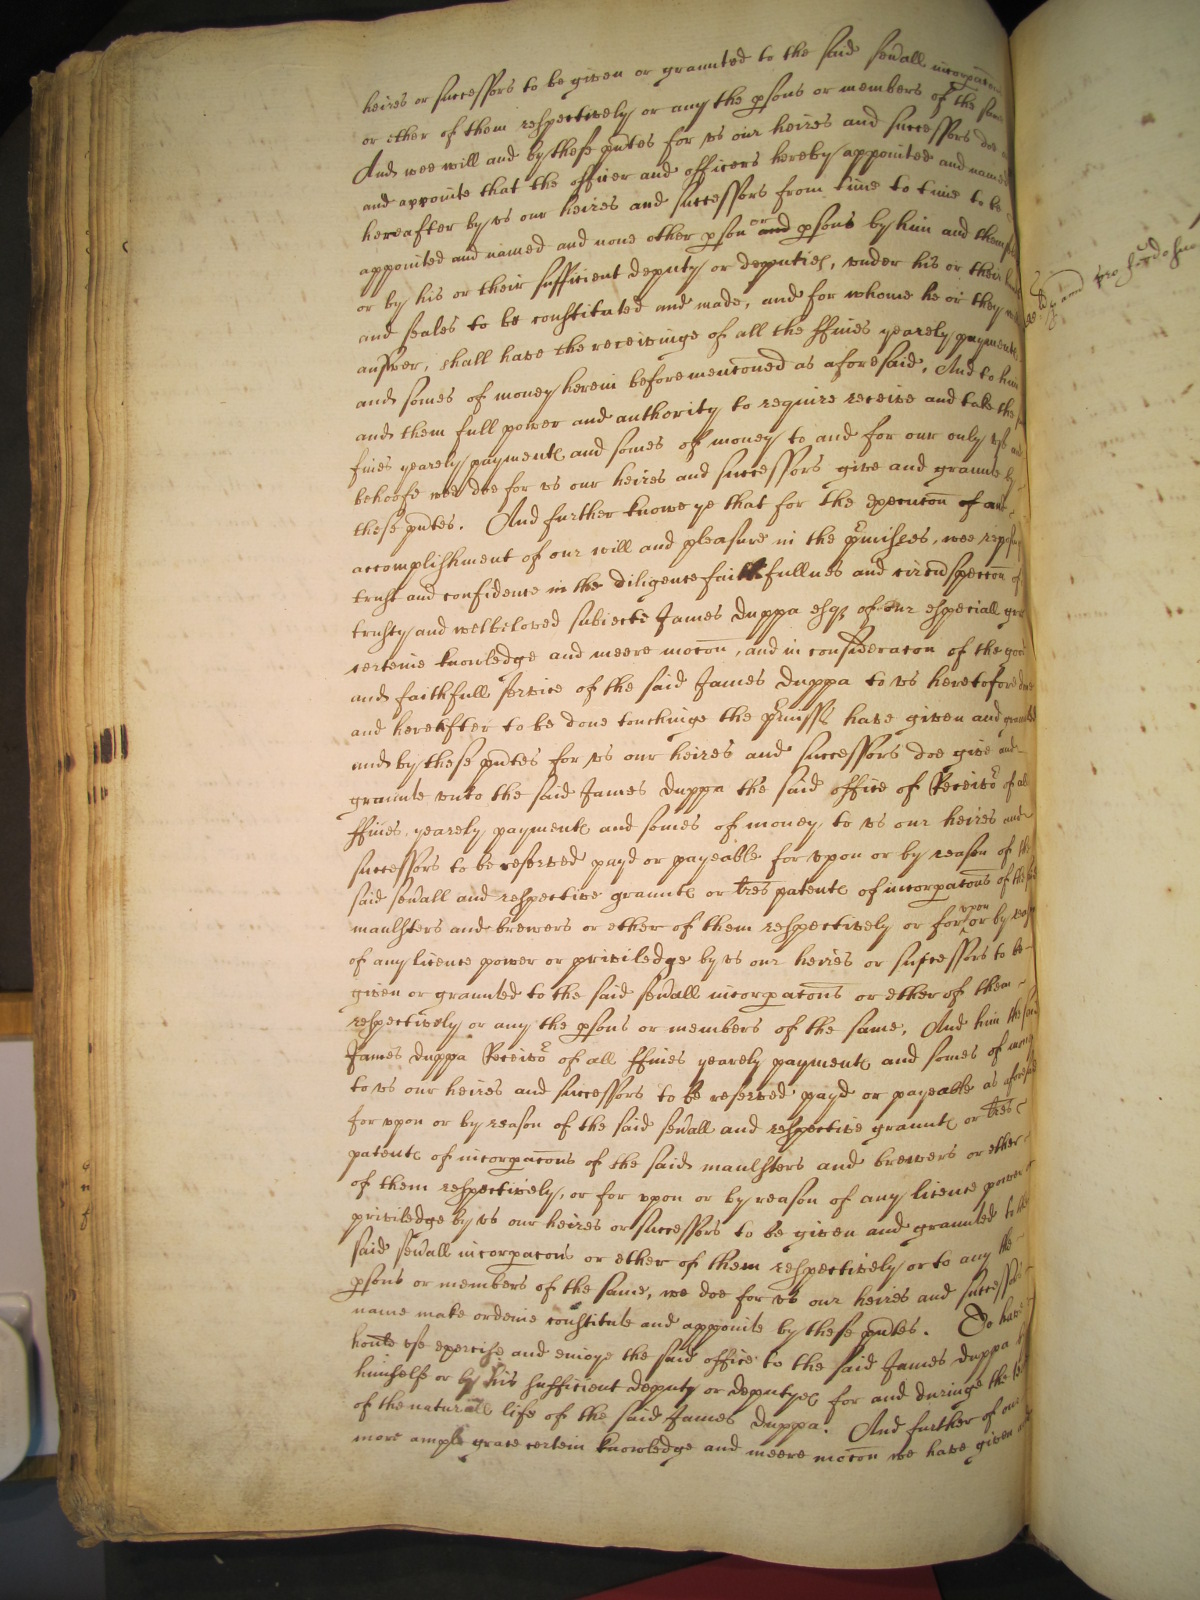 heires or successors to be given or graunted to the said seuall incorpacons
or ether of them respectively or any the psons or members of the same
And wee will and by these pntes for vs our heires and successors doe
and appointe that the officer and officers hereby appointed and named
hereafter by vs our heires and successors from time to time to be
appointed and named and none other pson or and psons by him and them
or by his or their sufficient deputy or deputies, vnder his or their
and seales to be constituted and made, and for whome he or they
answer, shall have the receivinge of all the ffines yearely payments
and somes of money herein before menconed as aforesaid, And to him
and them full power and authority to require receive and take the
fines yearely payments and somes of money to and for our only vse and
behoofe wee doe for vs our heires and successors give and graunte by
these pntes. And further knowe ye that for the execucon of and
accomplishment of our will and pleasure in the pmisses, wee reposing
trust and confidence in the diligence faithfullnes and circumspeccon of
trusty and welbeloved subiecte James Duppa esqr of our especiall grace
certeine knowledge and meere mocon, and in consideracon of the good
and faithfull service of the said James Duppa to vs heretofore done
and hereafter to be done touchinge the pmisses have given and graunted
and by these pntes for vs our heires and successors doe give and
graunte vnto the said James Duppa the said office of Receivor of all
ffines, yearely payments and somes of money, to vs our heires and
successors to be reserved payd or payeable for vpon or by reason of the
said seuall and respective graunts or lres patents of incorpacons of the said
maulsters and brewers or ether of them respectively or for vpon or by reason
of any licence power or priviledge by vs our heires or successors to be
given or graunted to the said seuall incorpacons or ether of them
respectively or any the psons or members of the same, And him the said
James Duppa Receivor of all ffines yearely payments and somes of money
to vs our heires and successors to be reserved payd or payeable as aforesaid
for vpon or by reason of the said seuall and respective graunts or lres
patents of incorpacons of the said maulsters and brewers or ether
of them respectively, or for vpon or by reason of any licence power or
priviledge by vs our heires or successors to be given and graunted to the
said seuall incorpacons or ether of them respectively or to any the
psons or members of the same, we doe for vs our heires and successors
name make ordeine constitute and appointe by these pntes. To have
houlde vse exercise and enioye the said office to the said James Duppa by
himselfe or by his sufficient deputy or deputyes for and duringe the
of the naturall life of the said James Duppa. And further of our
more ample grace certein knowledge and meere mocon we have given and